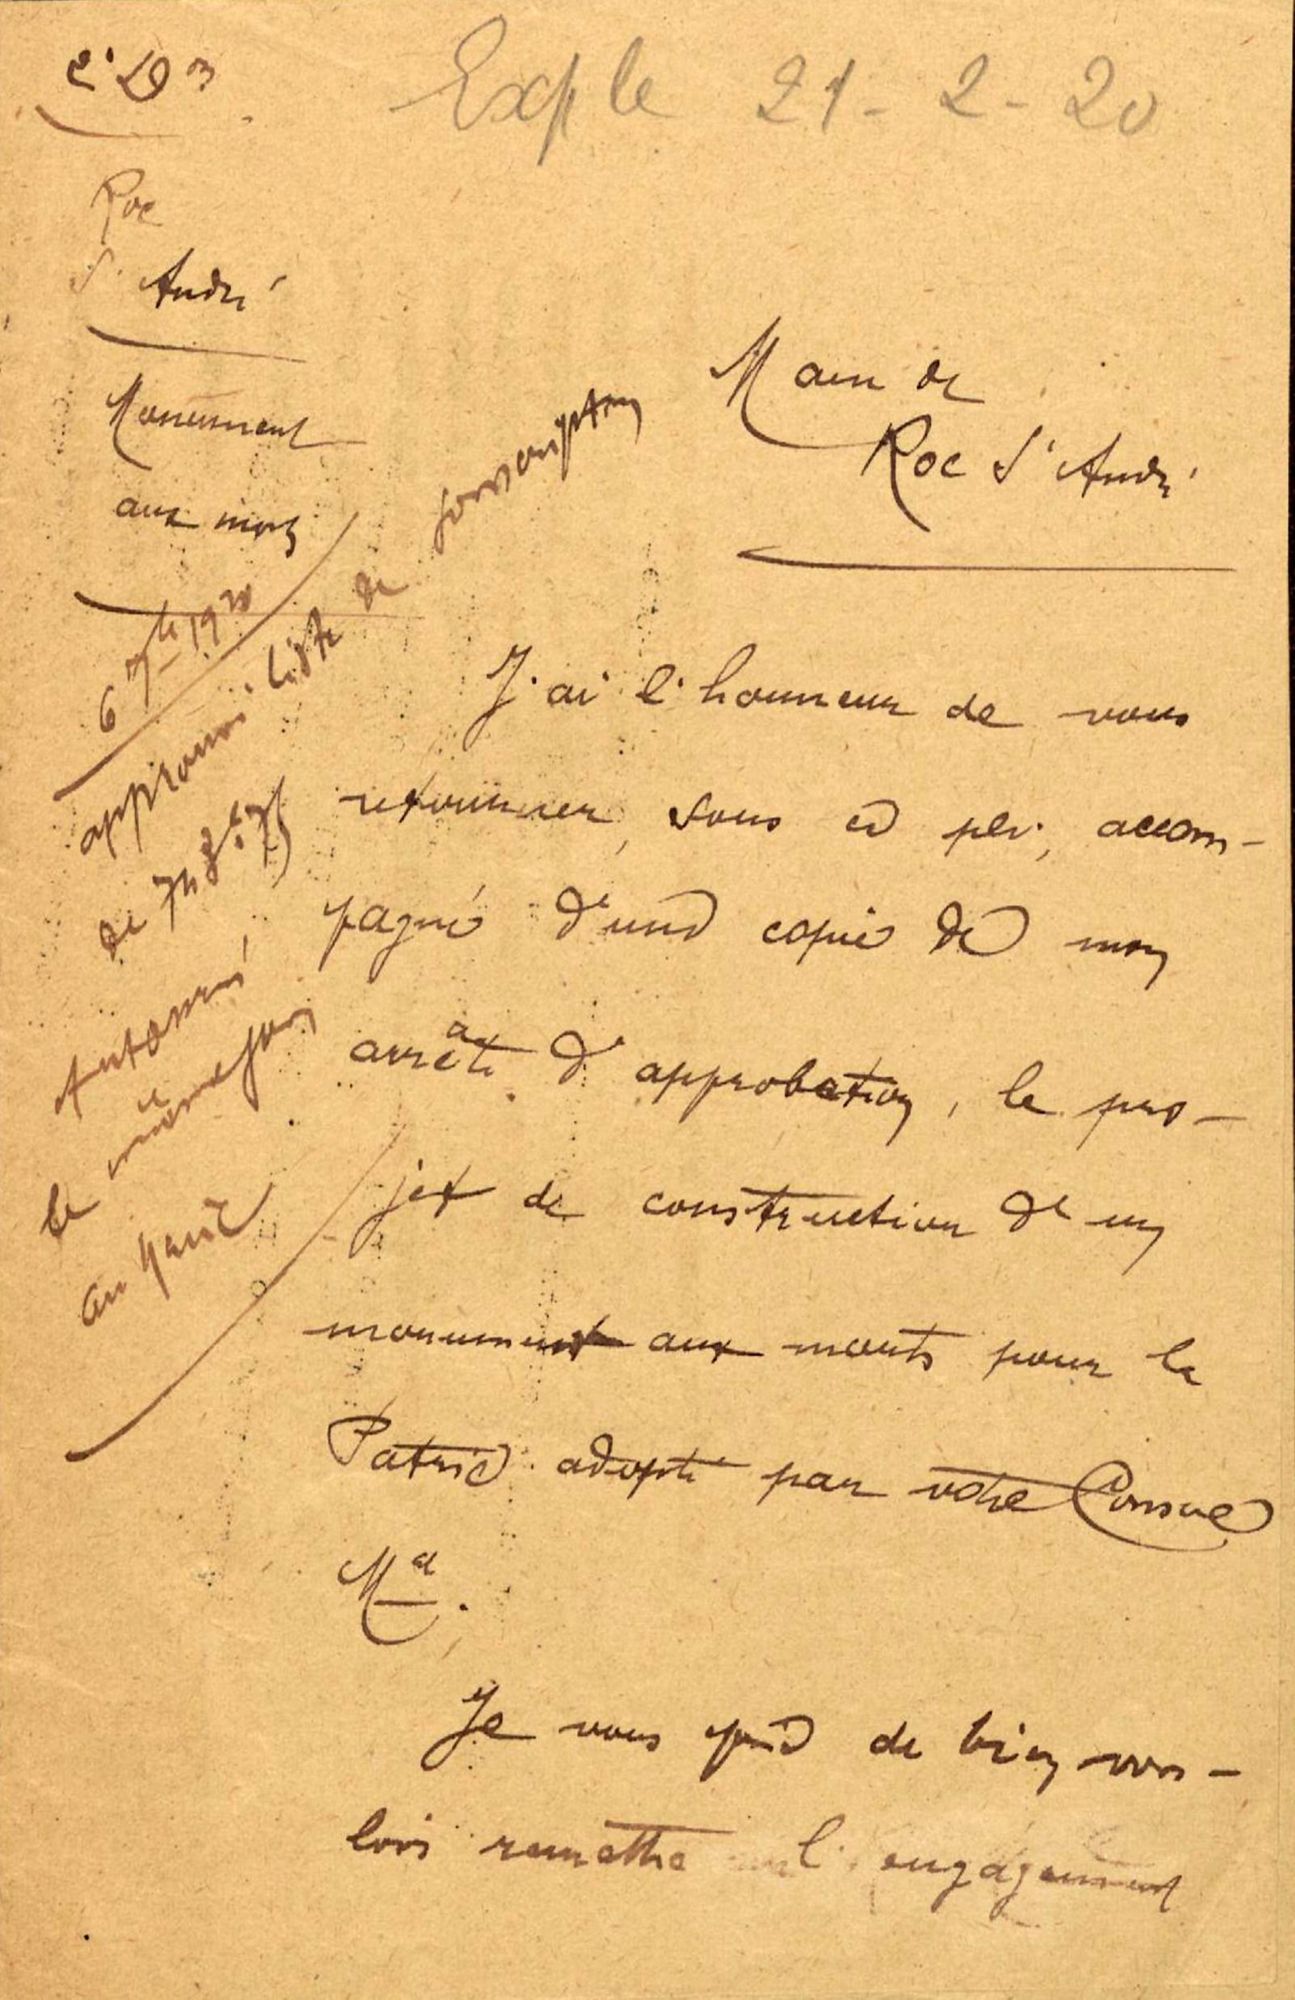 2e Don
Exp le 21-2-20
Roc
St André
Monument
aux morts
Maire de
Roc St André
6 7bre 1920
approuvé liste de souscription
de 7485f75
Autorisé
le même jour
J'ai l'honneur de vous
retourner, sous ce pli, accom-
pagné d'une copie de mon
arrêté d'approbation, le pro-
jet de construction d'un
monument aux morts pour la
Patrie adopté par votre Conseil
Mal.
Je vous prie de bien vou-
loir remettre l'engagement